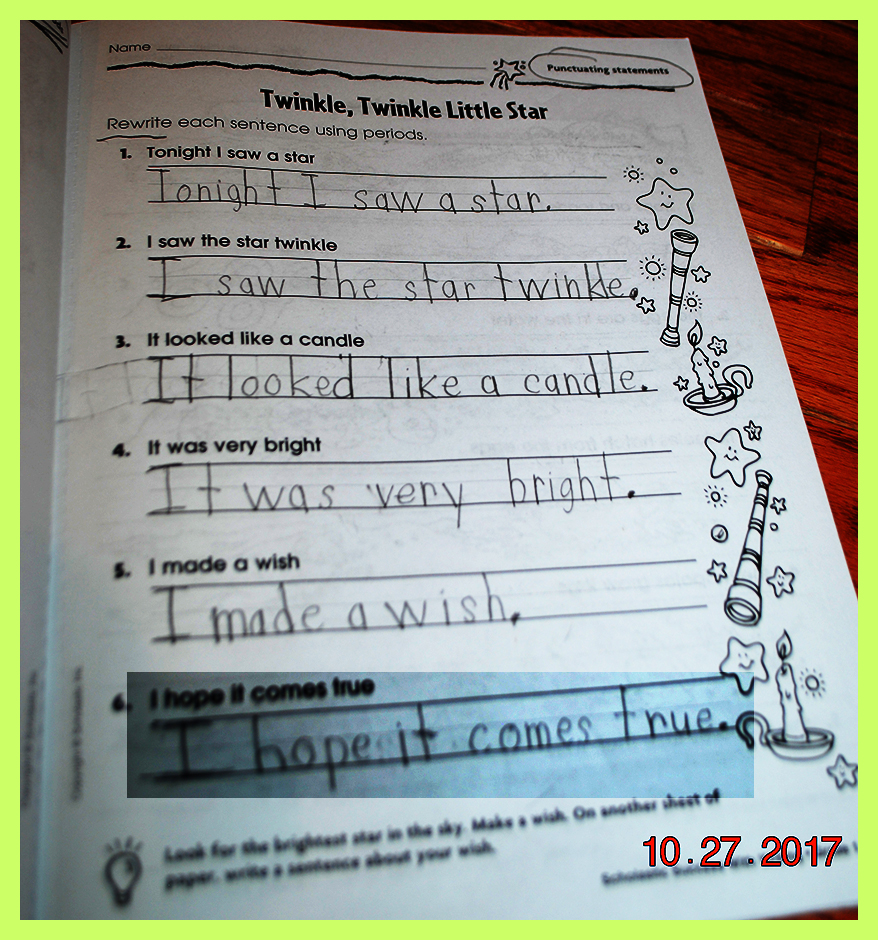 Name
Punctuating statements
Twinkle, Twinkle Little Star
Rewrite each sentence using periods.
1. Tonight I saw a star
Tonight I saw a star.
2. I saw the star twinkle
I saw the star twinkle.
3. It looked like a candle
It looked like a candle.
4. It was very bright
It was very bright.
5. I made a wish
I made a wish.
6. I hope it comes true
I hope it comes true.
Look for the brightest star in the sky. Make a wish. On another sheet of
paper, write a sentence about your wish.
10.27.2017
Scholastic Success